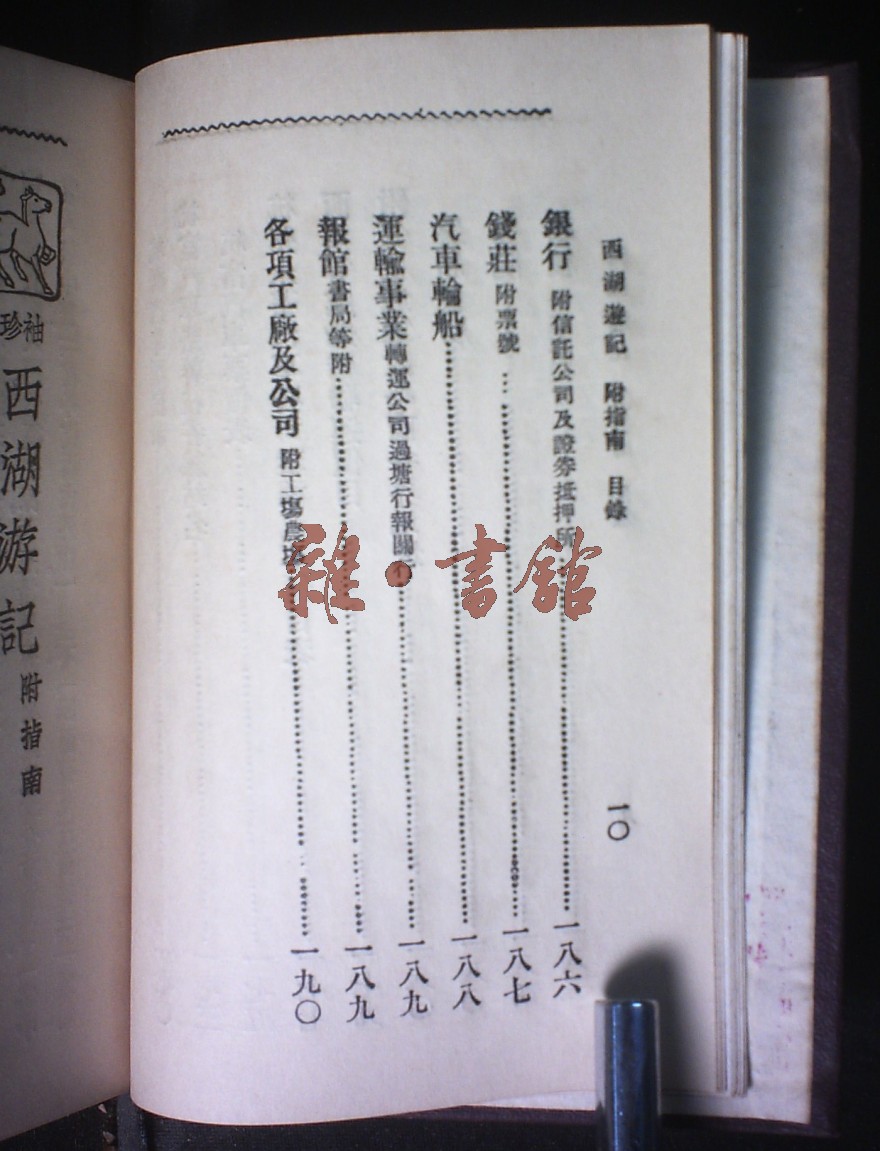 西湖遊記 附指南 目錄 一〇
銀行 附信託公司及證券抵押所 一八六
錢莊 附票號 一八七
汽車輪船 一八八
運輸事業 轉運公司過塘行報關行 一八九
報館 書局等附 一八九
各項工廠及公司 附工場農場 一九〇
袖珍
西湖游記
附指南
雜·書館